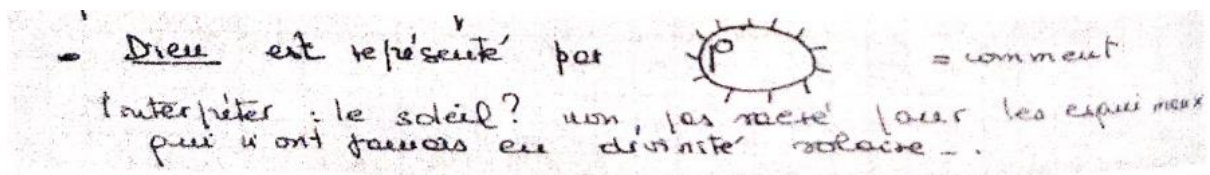 - Dieu est représenté par = comment
interpréter : le soleil ? non, pas sacré pour les esquimaux
qui n'ont jamais eu divinité solaire -.